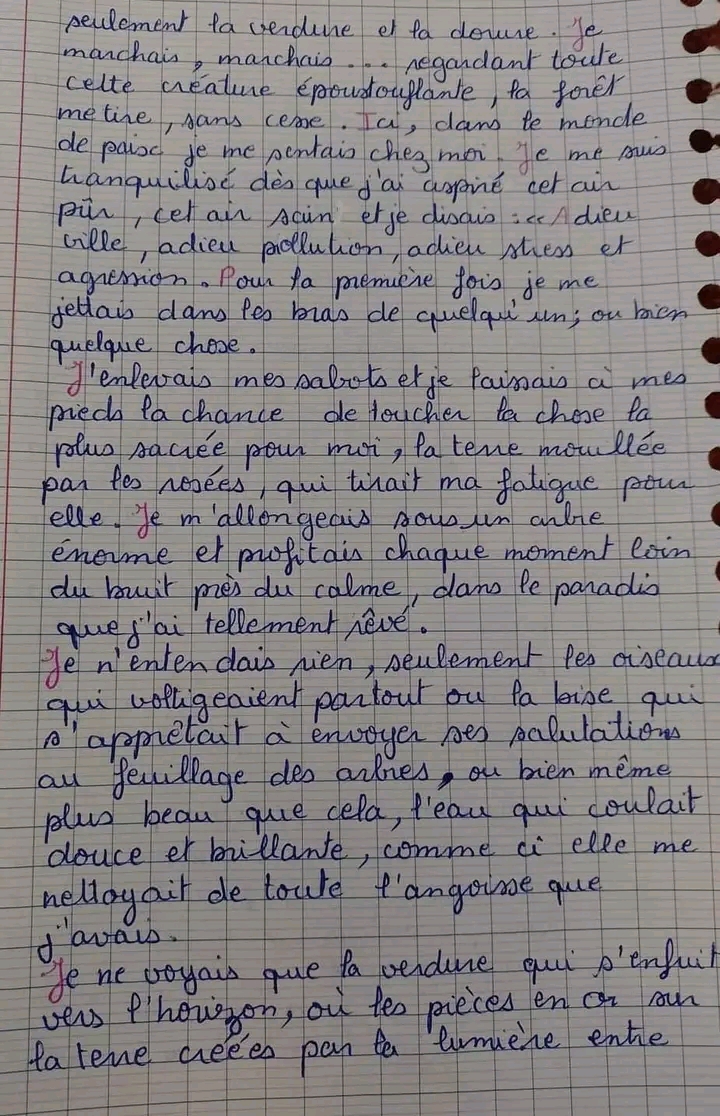 seulement la verdure et la dorure. Je
marchais, marchais ... regardant toute
cette créature époustouflante, la forêt
me tire, sans cesse. Ici, dans le monde
de paix je me sentais chez moi. Je me suis
tranquilisé dès que j'ai aspiré cet air
pûr, cet air sain et je disais : « Adieu
ville, adieu pollution, adieu stress et
agression. Pour la première fois je me
jettais dans les bras de quelqu'un; ou bien
quelque chose.
J'enlevais mes sabots et je faissais à mes
pieds la chance de toucher la chose la
plus sacrée pour moi, la terre mouillée
par les rosées, qui tirait ma fatigue pour
elle. Je m'allongeais sous un arbre
énorme et profitais chaque moment loin
du bruit près du calme, dans le paradis
que j'ai tellement rêvé.
Je n'entendais rien, seulement les oiseaux
qui voltigeaient partout ou la bise qui
s'apprêtait à envoyer ses salutations
au feuillage des arbres, ou bien même
plus beau que cela, l'eau qui coulait
douce et brillante, comme ci elle me
nettoyait de toute l'angoisse que
j'avais.
Je ne voyais que la verdure qui s'enfuit
vers l'horizon, où les pièces en or sur
la terre créées par la lumière entre